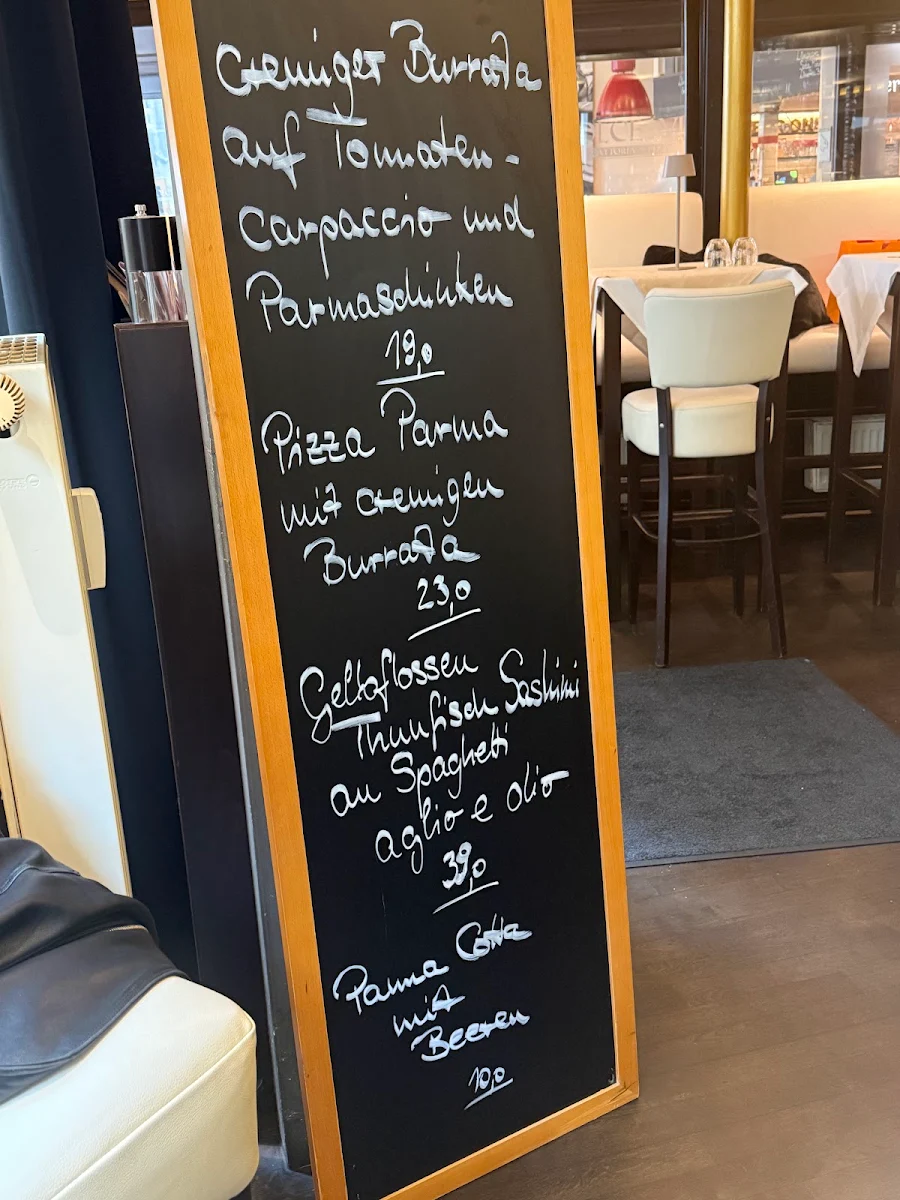 Cremiger Burrata
auf Tomaten-
carpaccio und
Parmaschinken
19,0
Pizza Parma
mit cremigen
Burrata
23,0
Gelbflossen
Thunfisch Sashimi
an Spaghetti
aglio e olio
39,0
Panna Cotta
mit
Beeren
10,0